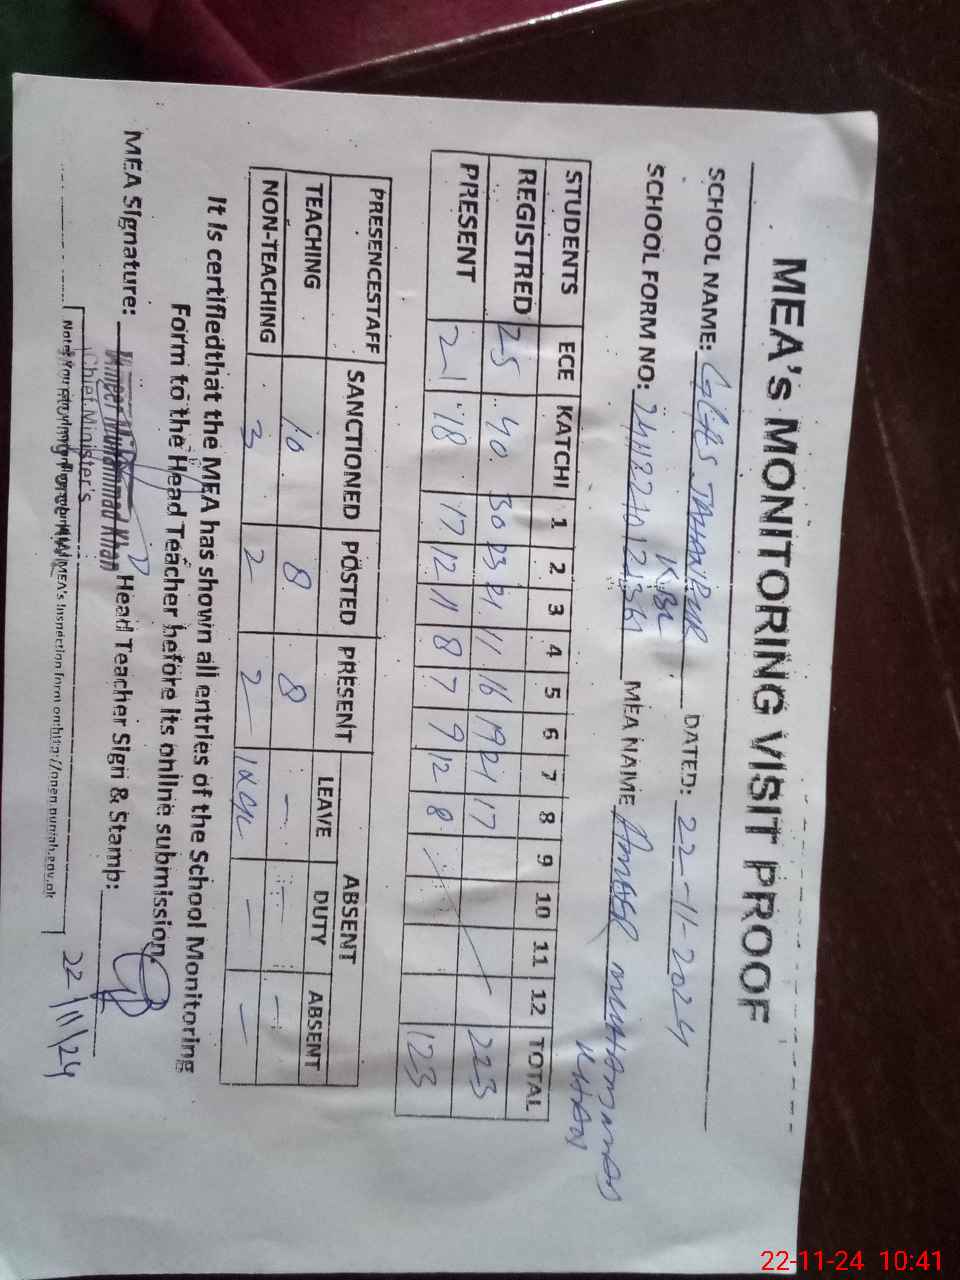 MEA's MONITORING VISIT PROOF
SCHOOL NAME: JAHANPUR DATED: 22-11-2024
KBL
SCHOOL FORM NO: MEA NAME AMEER MUHAMMAD
KHAN
STUDENTS ECE KATCHI 1 2 3 4 5 6 7 8 9 10 11 12 TOTAL
REGISTRED 25 40 30 23 21 11 16 19 21 17 223
PRESENT 21 18 17 12 11 8 7 9 12 8 123
PRESENCESTAFF SANCTIONED POSTED PRESENT ABSENT
LEAVE DUTY ABSENT
TEACHING 10 8 8 - - -
NON-TEACHING 3 2 2 - -
It is certifiedthat the MEA has shown all entries of the School Monitoring
Form to the Head Teacher before its online submission.
MEA Signature: Head Teacher Sign & Stamb:
Muhammad Khan
Chief Minister's
22/11/24
22-11-24 10:41